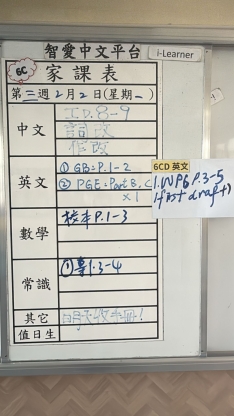 智愛中文平台
i-Learner
6C
家課表
第三週2月2日(星期一)
中文
工P.8-9
詞改
作改
英文
① GB: P.1-2
② PGE: Part B, C
x 1
6CD 英文
1. WP6 P.3-5
(first draft)
數學
校本P.1-3
常識
P.3-4
其它
明天收手冊!
值日生